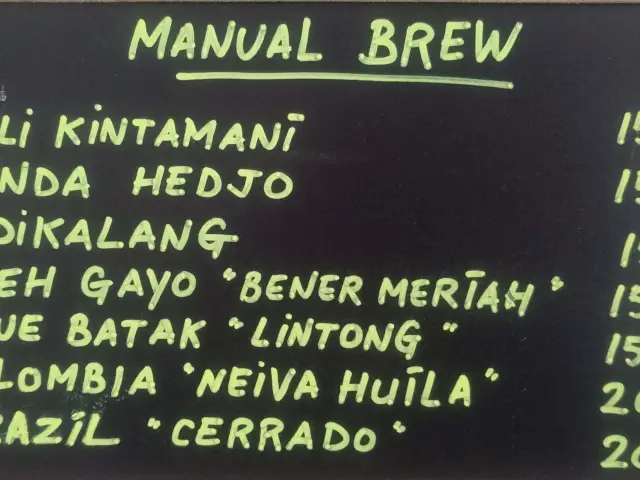 MANUAL BREW
LI KINTAMANI 15
NDA HEDJO 15
DIKALANG 15
EH GAYO "BENER MERIAH" 15
UE BATAK "LINTONG" 15
LOMBIA "NEIVA HUILA" 20
RAZIL "CERRADO" 20